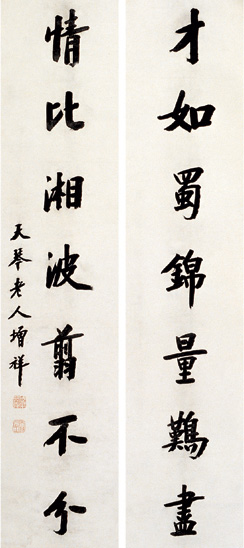 才如蜀錦量難盡
情比湘波翦不分
天琴老人增祥